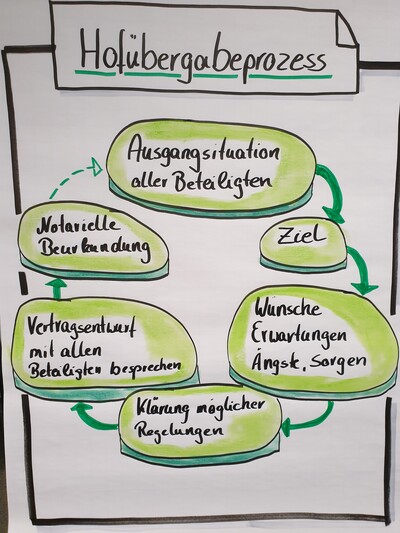 Hofübergabeprozess
Ausgangsituation
aller Beteiligten
Ziel
Wünsche
Erwartungen
Ängste, Sorgen
Klärung möglicher
Regelungen
Vertragsentwurf
mit allen
Beteiligten besprechen
Notarielle
Beurkundung